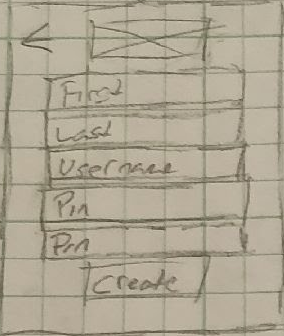 First
Last
Username
Pin
Pin
Create